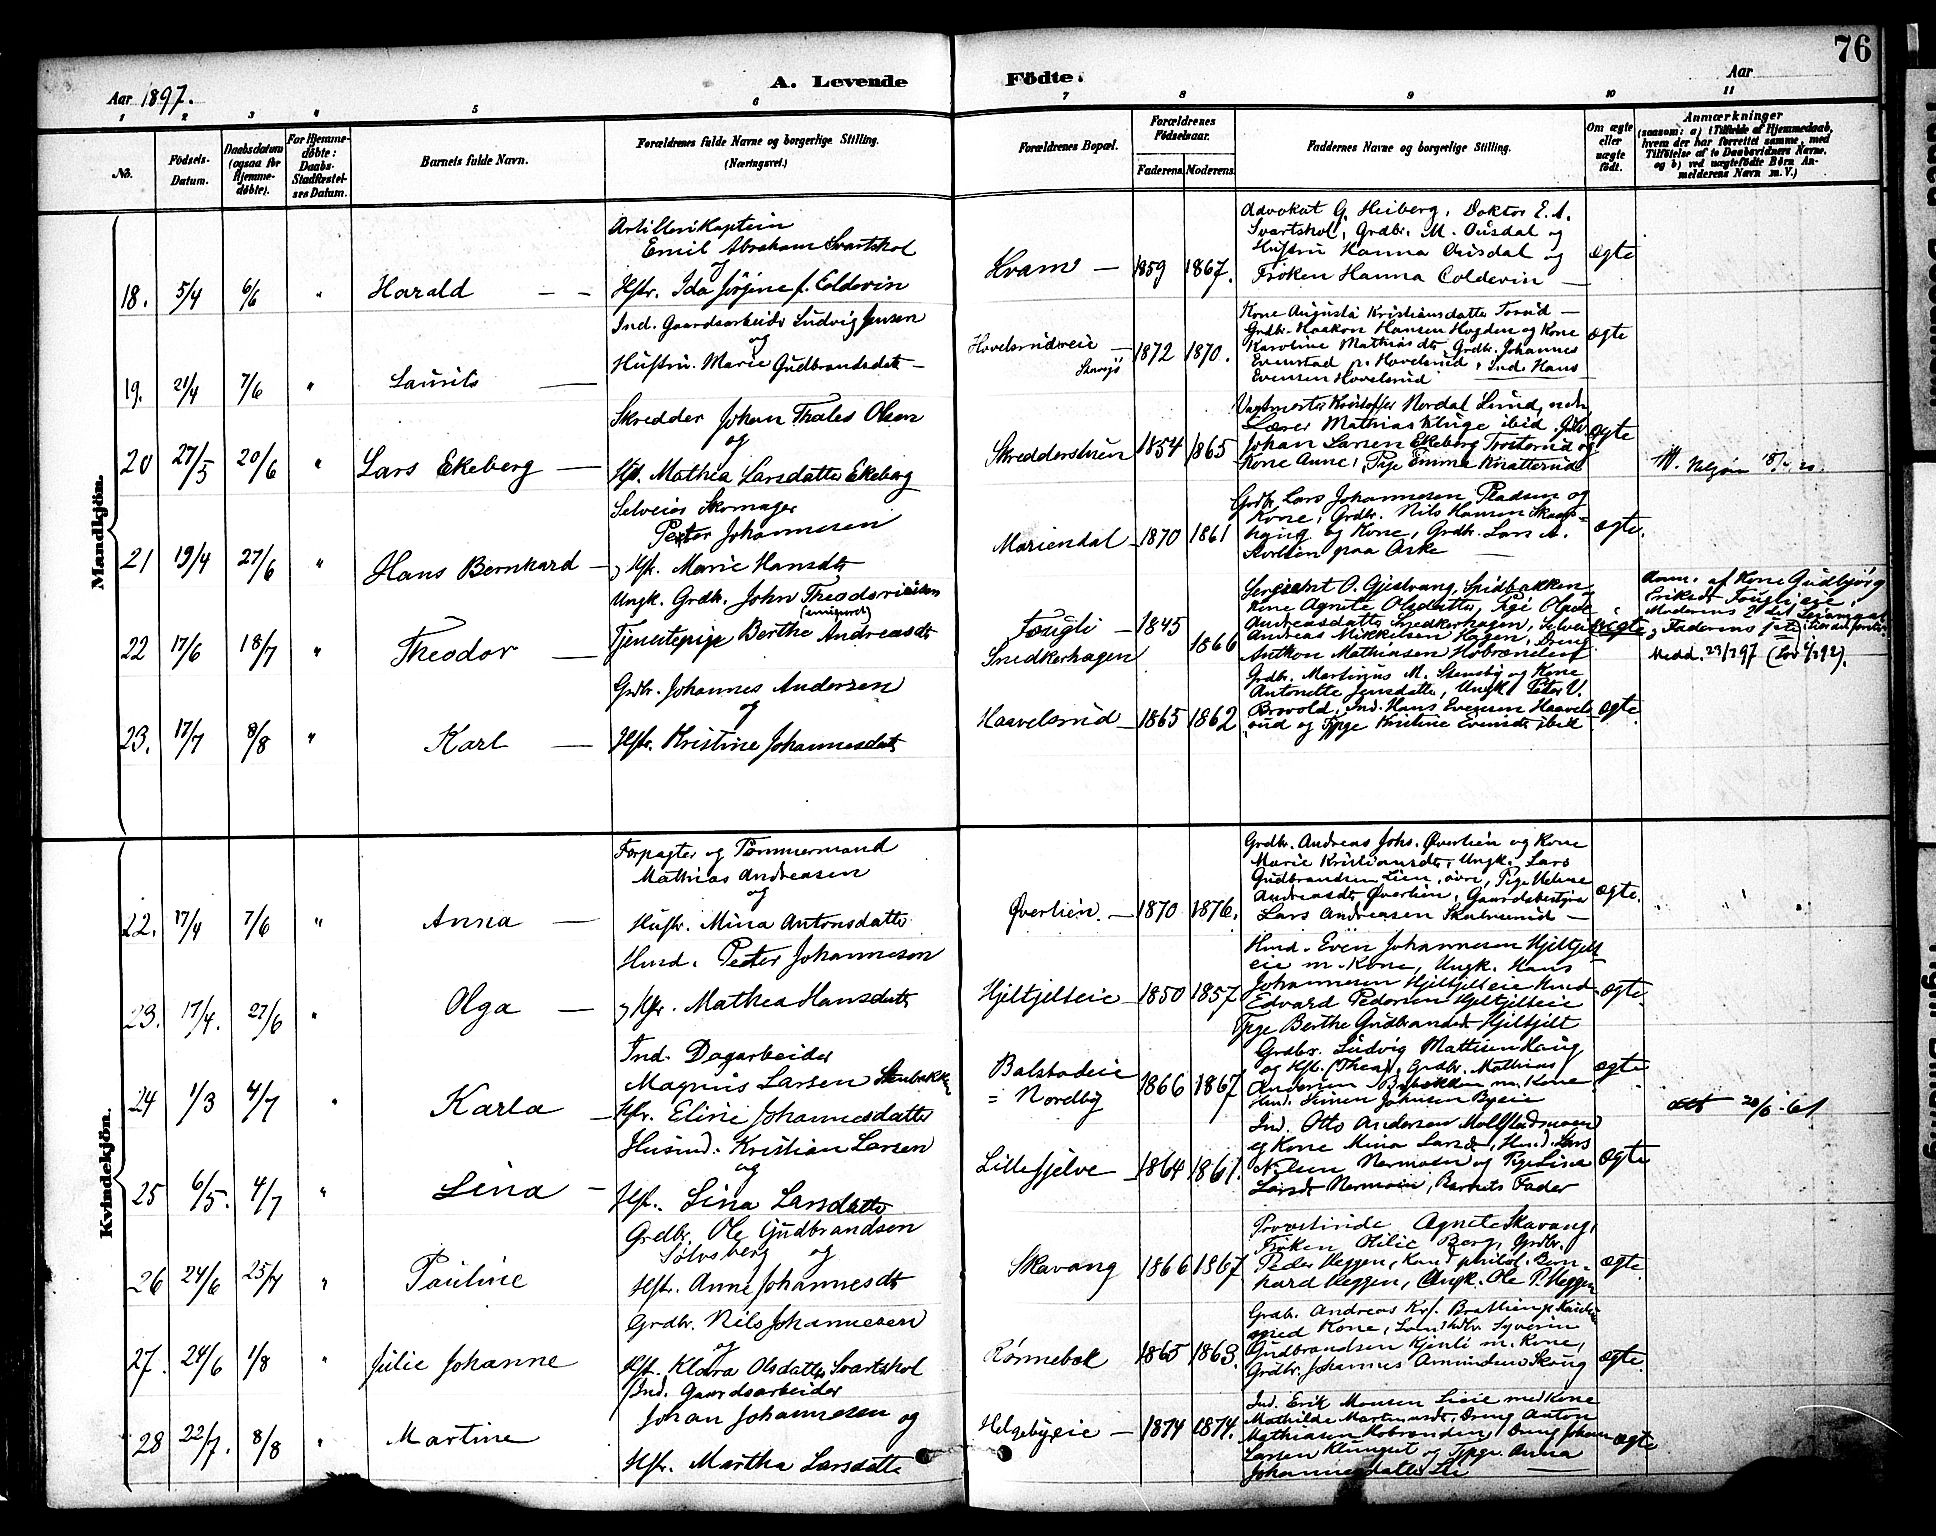 76
Aar 1897.
A. Levende Födte.
Aar
1 2 3 4 5 6 7 8 9 10 11
No.
Födsels-Datum.
Daabsdatum (ogsaa för Hjemme-döbte).
For Hjemme-döbte: Daabs-Stadfæstelses Datum.
Barnets fulde Navn.
Forældrenes fulde Navne og borgerlige Stilling. (Næringsvei.)
Forældrenes Bopæl.
Forældrenes Födselsaar.
Faderens Moderens
Faddernes Navne og borgerlige Stilling.
Om ægte eller uægte födt.
Anmærkninger
(saasom: a) i Tilfælde af Hjemmedaab, hvem der har forrettet samme, med Tilföielse af to Daabsvidners Navne, og b) ved uægtefödte Börn Anmelderens Navn m. V.)
Mandkjön.
18. 5/4 6/6 " Harald
Artillerikaptein
Emil Abraham Svartskol
og
Hstr. Ida Jörgine f. Coldevin
Hvam 1859 1867.
Advokat G. Heiberg, Doktor E. A.
Svartskol, Grdbr. M. Ousdal og
Hustru Hanna Ousdal og
Fröken Hanna Coldevin
ægte
19. 21/4 7/6 " Laurits
Ind. Gaardsarbeider Ludvig Jensen
og
Hustru Marie Gudbrandsdatt
Hovelsrudeie 1872 1870.
Kone Augusta Kristiansdatter Torud
Grdbr. Haakon Hansen Hogden og Kone
Karoline Mathiasdt, Grdbr. Johannes
Evenstad p. Hovelsrud, Ind. Hans
Evensen Hovelsrud
ægte
20 27/5 20/6 " Lars Ekeberg
Skredder Johan Thales Olsen
og
Hst. Mathea Larsdatter Ekeberg
Skredderstuen 1854 1865
Vagtmester Kristoffer Nordal Lund,
Lærer Mathias Kluge ibid.
Johan Larsen Ekeberg og
Kone Anne, Pige Emma Knatterud
ægte
21 19/4 27/6 " Hans Bernhard
Selveier Skomager
Petter Johannesen
og Hst. Marie Hansdt
Mariendal 1870 1861
Grdbr. Lars Johannesen Pladsen og
Kone, Grdbr. Nils Hansen Skaugs-
haug og Kone, Grdbr. Lars A.
paa Aske
ægte.
22 17/6 18/7 " Theodor
Ungk. Grdbr. John Theodorsen
(emigreret)
Tjenestepige Berthe Andreasdt
Fougli 1845
Snedkerhagen 1866
Sergeant O. Gjestvang,
Kone Agnete Olsdatter, Pige
Andreasdatter Snedkerhagen,
Andreas Mikkelsen Hagen, Dreng
Anthon Mathiasen Hobrænden
uægte
Anm. af Kone Gudbjörg
Eriksdt Fougli eie,
Moderens
og Faderens
Medd. 23/7 97 (Lov 6/7 92).
23. 17/7 8/8 " Karl
Grdbr. Johannes Andersen
og
Hstr. Kristine Johannesdatt
Haavelsrud 1865 1862
Grdbr. Martinius M. Stensby og Kone
Antonette Jensdatter, Ungk. Peter U.
Brovold, Ind. Hans Evensen Haavels-
rud og Tjpge Kristine Evensdt ibid
ægte.
Kvindekjön.
22. 17/4 7/6 " Anna
Forpagter og Tömmermand
Mathias Andreasen
og
Hustr. Mina Antonsdatter
Överlien. 1870 1876.
Grdbr. Andreas Johs. Överlien og Kone
Marie Kristiansdt, Ungk. Lars
Gudbrandsen Lien, övre, Pige Helene
Andreasdt Överlien, Gaardsbestyrer
Lars Andreasen Skulserud
ægte.
23. 17/4. 27/6 " Olga
Hmd. Petter Johannesen
og Hstr. Mathea Hansdatt
Hjeltjelteie 1850 1857
Hmd. Even Johannesen Hjeltjelt-
eie m. Kone, Ungk. Hans
Johannesen Hjeltjelteie
Edvard Pedersen Hjeltjelteie
Tpge Berthe Gudbrandsdt Hjeltjelt
ægte.
24 1/3 4/7 " Karla
Ind. Dagarbeider
Magnus Larsen Stenbakken
Hstr. Eline Johannesdatter
Balstadeie = Nordby 1866 1867
Grdbr. Ludvig Mattisen Haug
og Hst. Thea, Grdbr. Mathias
Andersen m. Kone
Hmd. Simen Johnsen Byeie
ægte.
20/6-61
25 6/5. 4/7 " Lina
Husmd. Kristian Larsen
og
Hst. Lina Larsdatter
Lillesjelve 1864 1861.
Ind. Otto Andersen
og Kone Mina Larsdt, Hmd. Lars
Nilsen Nermoen og Pige Lina
Larsdt Nermoen, Barnets Fader
ægte
26 24/6 25/7 " Pauline
Grdbr. Ole Gudbrandsen
Sölvsberg og
Hstr. Anne Johannesdt
Skavang 1866 1867
Provstinde Agnete Skavang,
Fröken Otilie Berg, Grdbr.
Peder Heggen, Kand. philol. Bern-
hard Heggen, Ungk. Ole P. Heggen
ægte.
27. 24/6 1/8 " Julie Johanne
Grdbr. Nils Johannesen
og
Hstr. Klara Olsdatter Svartskol
Rönnebæk 1865 1863.
Grdbr. Andreas Kr.
med Kone, Syverin
Gudbrandsen Kjenli m. Kone,
Grdbr. Johannes Amundsen Skoug
ægte.
28 22/7. 8/8 " Martine
Ind. Gaardsarbeider
Johan Johannesen og
Hstr. Martha Larsdatter
Helgebyeie 1874 1874.
Ind. Erik Monsen Lieie med Kone
Mathilde Martinsdt, Dreng Anton
Mathiasen Hobrænden, Ung Johan
Larsen Klunget og Tjpge Anna
Johannesdatter Lie
ægte